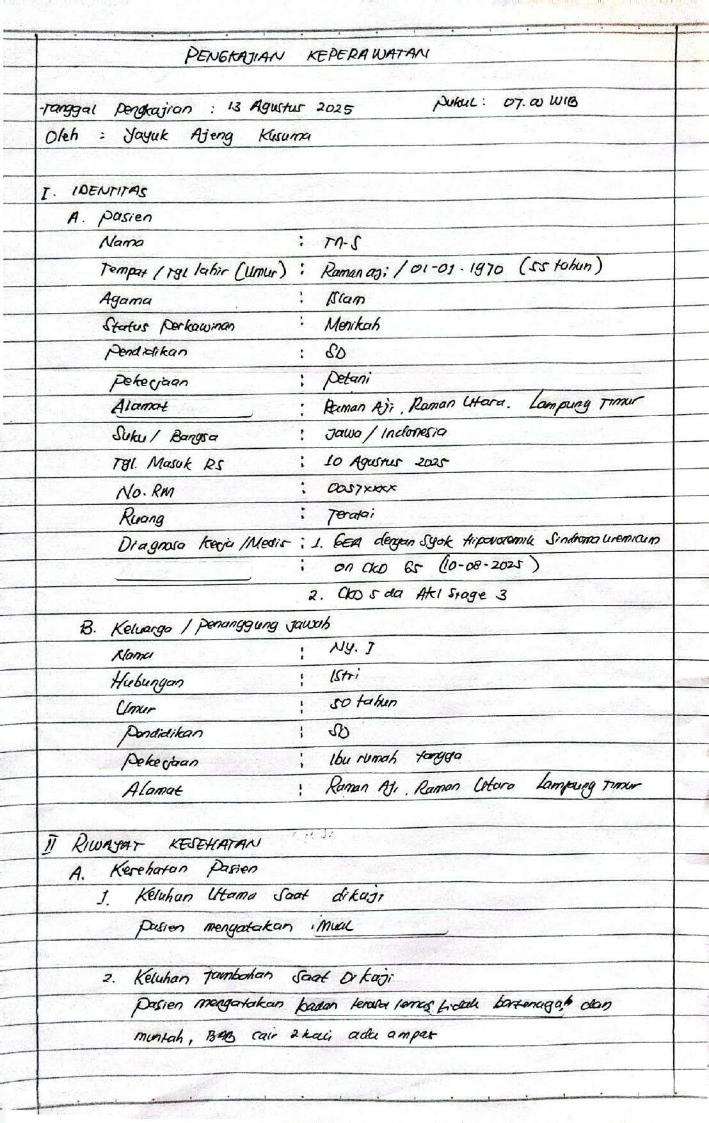 PENGKAJIAN KEPERAWATAN
Tanggal Pengkajian : 13 Agustus 2025 Pukul : 07.00 WIB
Oleh : Yayuk Ajeng Kusuma
I. IDENTITAS
A. Pasien
Nama : Tn.S
Tempat / Tgl lahir (Umur) : Raman aji / 01-01-1970 (55 tahun)
Agama : Islam
Status Perkawinan : Menikah
Pendidikan : SD
Pekerjaan : Petani
Alamat : Raman Aji, Raman Utara. Lampung Timur
Suku / Bangsa : Jawa / Indonesia
Tgl. Masuk RS : 10 Agustus 2025
No. RM : 0057xxxx
Ruang : Teratai
Diagnosa Kerja /Medis : 1. GEA dengan Syok Hipovoremik Sindroma uremicum
: on CKD G5 (10-08-2025)
2. CKD 5 da AKI Stage 3
B. Keluarga / Penanggung Jawab
Nama : Ny. J
Hubungan : Istri
Umur : 50 tahun
Pendidikan : SD
Pekerjaan : Ibu rumah tangga
Alamat : Raman Aji, Raman Utara Lampung Timur
II RIWAYAT KESEHATAN
A. Kesehatan Pasien
1. Keluhan Utama Saat dikaji
Pasien mengatakan mual
2. Keluhan tambahan Saat Di kaji
Pasien mengatakan badan terasa lemas, tidak bertenaga, dan
muntah, BAB cair 2 kali ada ampas